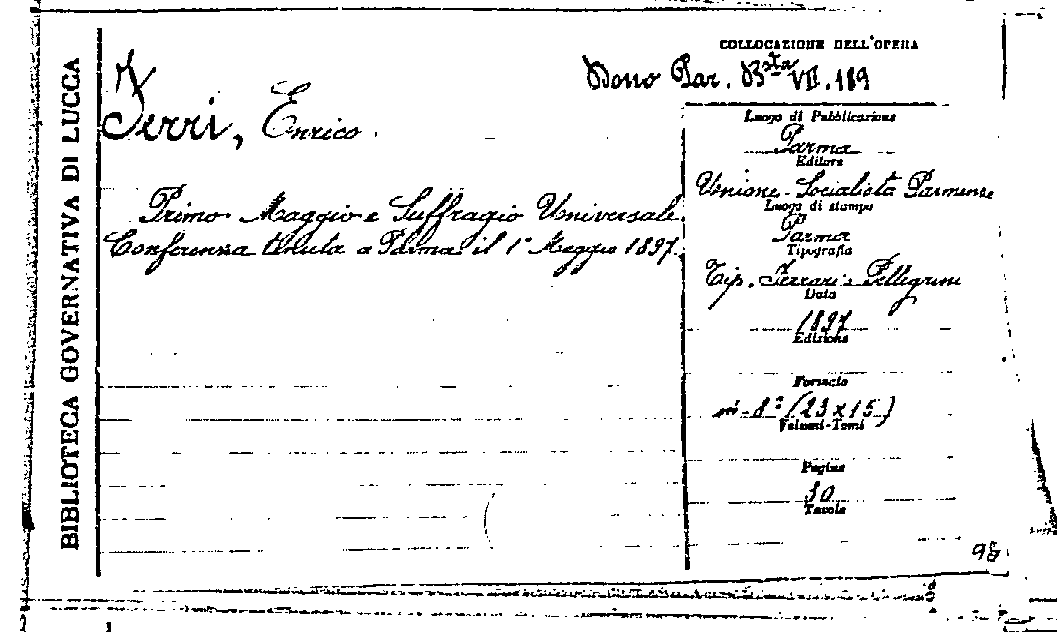 BIBLIOTECA GOVERNATIVA DI LUCCA
COLLOCAZIONE DELL'OPERA
Dono Par. Bsta VII. 189
Ferri, Enrico.
Primo Maggio e Suffragio Universale.
Conferenza tenuta a Parma il 1° Maggio 1897.
Luogo di Pubblicazione
Parma
Editore
Unione Socialista Parmense
Luogo di stampa
Parma
Tipografia
Tip. Ferrari e Pellegrini
Data
1897
Edizione
Formato
in-8° (23x15)
Volumi-Tomi
Pagine
Tavole